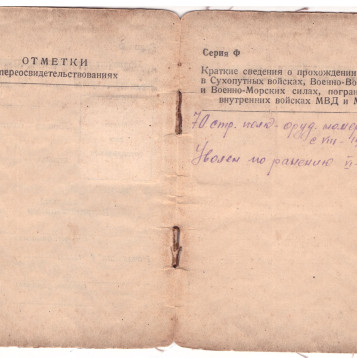 ОТМЕТКИ
переосвидетельствованиях
Серия Ф
Краткие сведения о прохождении
в Сухопутных войсках, Военно-Во
и Военно-Морских силах, погран
внутренних войсках МВД и М
70 стр. полк. оруд. номе
с VIII.
Уволен по ранению II